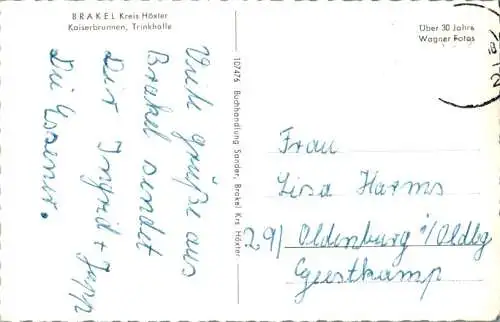 BRAKEL Kreis Höxter
Kaiserbrunnen, Trinkhalle
Viele grüße aus
Brakel sendet
Dir Ingrid +
Die
10/476 Buchhandlung Sander, Brakel Krs Höxter
Über 30 Jahre
Wagner Fotos
Frau
Lisa Harms
29/ Oldenburg i/Oldbg
Geestkamp